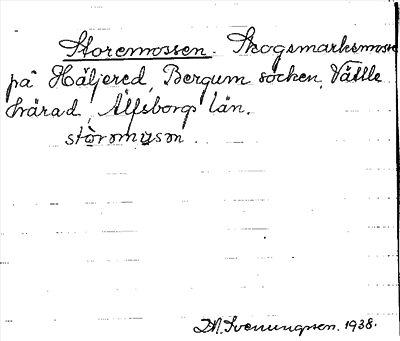 Storemossen. Skogsmarksmosse
på Häljered, Bergum socken, Vättle
härad, Älfsborgs län.
stòrmųsαn.
D.A. Svenungsson. 1938.